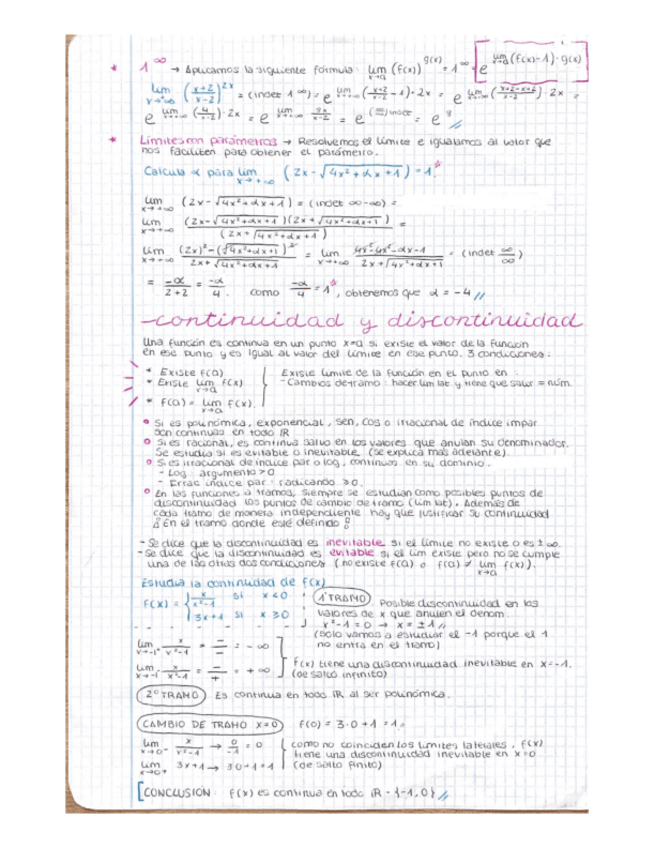 * 1^∞ → Aplicamos la siguiente fórmula: lim x→a (f(x))^g(x) = 1^∞ = e^lim x→a (f(x)-1)·g(x)
lim x→+∞ (x+2/x-2)^2x = (indet 1^∞) = e^lim x→+∞ (x+2/x-2 - 1)·2x = e^lim x→+∞ (x+2-x+2/x-2)·2x =
e^lim x→+∞ (4/x-2)·2x = e^lim x→+∞ 8x/x-2 = e^(∞/∞) indet = e^8 //
* Límites con parámetros → Resolvemos el límite e igualamos al valor que
nos faciliten para obtener el parámetro.
Calcula α para lim x→+∞ (2x-√4x²+αx+1) = 1*
lim x→+∞ (2x-√4x²+αx+1) = (indet ∞-∞) =
lim x→+∞ (2x-√4x²+αx+1)(2x+√4x²+αx+1) / (2x+√4x²+αx+1) =
lim x→+∞ (2x)²-(√4x²+αx+1)² / 2x+√4x²+αx+1 = lim x→+∞ 4x²-4x²-αx-1 / 2x+√4x²+αx+1 = (indet ∞/∞)
= -α/2+2 = -α/4. como -α/4 = 1*, obtenemos que α = -4 //
-continuidad y discontinuidad
Una función es continua en un punto x=a si existe el valor de la función
en ese punto y es igual al valor del límite en ese punto. 3 condiciones:
* Existe f(a)
* Existe lim x→a f(x)
* f(a) = lim x→a f(x).
Existe límite de la función en el punto en:
- Cambios de tramo: hacer lim lat. y tiene que salir = núm.
• Si es polinómica, exponencial, sen, cos o irracional de índice impar
son continuas en todo ℝ
• Si es racional, es continua salvo en los valores que anulan su denominador.
Se estudia si es evitable o inevitable. (se explica más adelante)
• Si es irracional de índice par o log, continuas en su dominio.
- Log: argumento > 0
- Irrac índice par: radicando ≥ 0.
• En las funciones a tramos, siempre se estudian como posibles puntos de
discontinuidad los puntos de cambio de tramo (lim lat). Además de
cada tramo de manera independiente hay que justificar su continuidad
¡¡ En el tramo donde esté definido !!
- Se dice que la discontinuidad es inevitable si el límite no existe o es ±∞.
- Se dice que la discontinuidad es evitable si el lim existe pero no se cumple
una de las otras dos condiciones (no existe f(a) o f(a) ≠ lim x→a f(x)).
Estudia la continuidad de f(x)
f(x) = { x/x²-1 si x<0
3x+1 si x≥0
1º TRAMO Posible discontinuidad en los
valores de x que anulen el denom.
x²-1 = 0 → x = ±1 //
(solo vamos a estudiar el -1 porque el 1
no entra en el tramo)
lim x→-1⁻ x/x²-1 = -/+ = -∞
lim x→-1⁺ x/x²-1 = -/- = +∞
f(x) tiene una discontinuidad inevitable en x=-1.
(de salto infinito)
2º TRAMO Es continua en todo ℝ al ser polinómica.
CAMBIO DE TRAMO x=0 f(0) = 3·0+1 = 1.
lim x→0⁻ x/x²-1 → 0/-1 = 0
lim x→0⁺ 3x+1 → 3·0+1 = 1
como no coinciden los límites laterales, f(x)
tiene una discontinuidad inevitable en x=0
(de salto finito)
[CONCLUSIÓN: f(x) es continua en todo ℝ - {-1,0} //